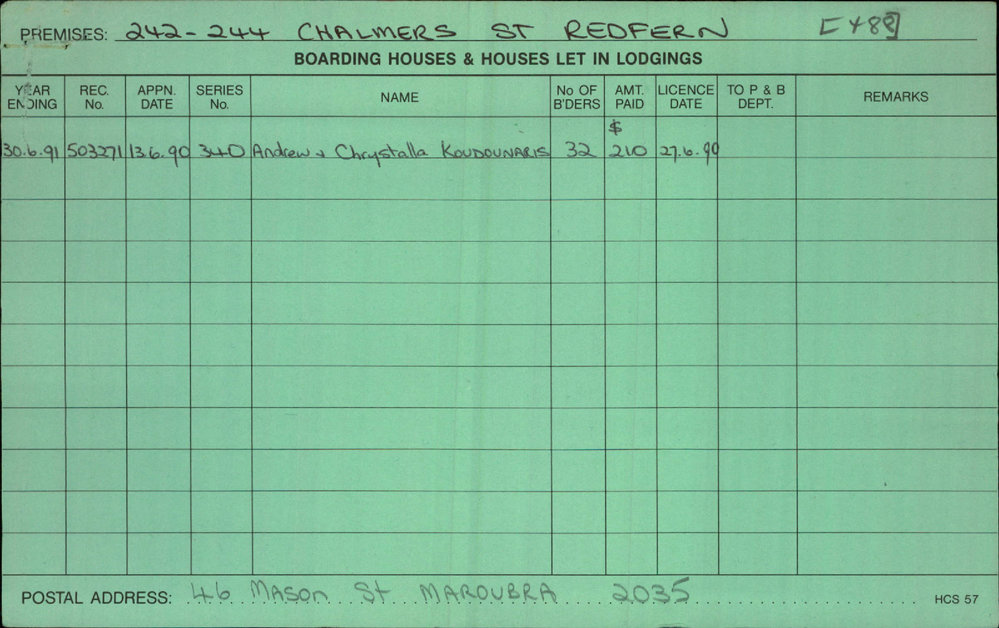 PREMISES: 242-244 CHALMERS ST REDFERN [488]
BOARDING HOUSES & HOUSES LET IN LODGINGS
YEAR ENDING REC. No. APPN. DATE SERIES No. NAME No OF B'DERS AMT. PAID LICENCE DATE TO P & B DEPT. REMARKS
$
30.6.91 503271 13.6.90 340 Andrew & Chrystalla KOUDOUNARIS 32 210 27.6.90
POSTAL ADDRESS: 46 Mason St MAROUBRA 2035 HCS 57